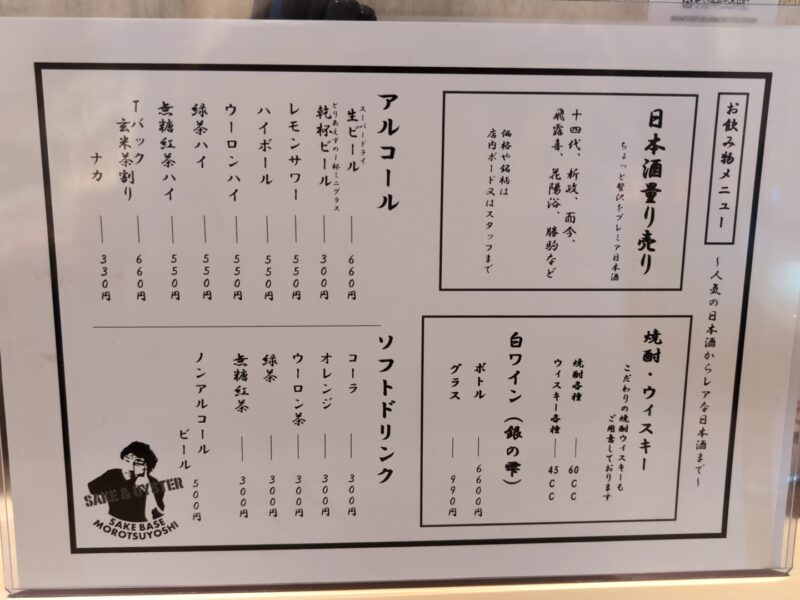 お飲み物メニュー
～人気の日本酒からレアな日本酒まで～
日本酒量り売り
ちょっと贅沢をプレミア日本酒
十四代、新政、而今、
飛露喜、花陽浴、勝駒など
価格や銘柄は
店内ボード又はスタッフまで
焼酎・ウィスキー
こだわりの焼酎ウィスキーも
ご用意しております
焼酎各種 ― 60CC
ウィスキー各種 ― 45CC
白ワイン（銀の雫）
ボトル ― 6600円
グラス ― 990円
アルコール
スーパードライ
生ビール ― 660円
とりあえずの一杯ミニグラス
乾杯ビール ― 300円
レモンサワー ― 550円
ハイボール ― 550円
ウーロンハイ ― 550円
緑茶ハイ ― 550円
無糖紅茶ハイ ― 550円
Tバック
玄米茶割り ― 660円
ナカ ― 330円
ソフトドリンク
コーラ ― 300円
オレンジ ― 300円
ウーロン茶 ― 300円
緑茶 ― 300円
無糖紅茶 ― 300円
ノンアルコール
ビール 500円
SAKE & OYSTER
SAKE BASE
MOROTSUYOSHI